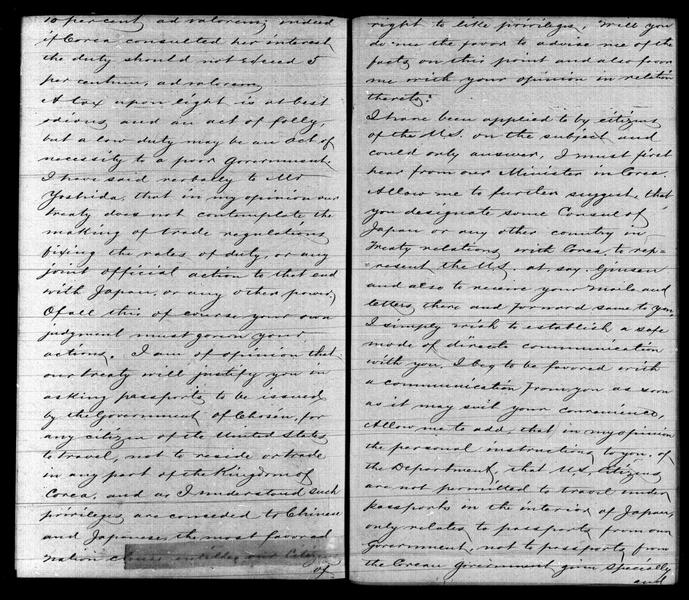 10 percent ad valorem, indeed
if Corea consulted her interest,
the duty should not exceed 5
per centum, ad valorem,
A tax upon light is at best
odious, and an act of folly,
but a low duty may be an act of
necessity to a poor Government.
I have said verbally to Mr
Yoshida, that in my opinion our
treaty does not contemplate the
making of trade regulations
fixing the rates of duty, or any
joint official action to that end
with Japan, or any other power,
Of all this of course your own
judgment must govern your
actions. I am of opinion that
our treaty will justify you in
asking passports to be issued
by the Government of Chosen, for
any citizen of the United States
to travel, not to reside or trade
in any part of the Kingdom of
Corea, and as I understand such
privileges are conceded to Chinese
and Japanese, the most favored
nation clause entitles our Citizens
of
right to like privileges. Will you
do me the favor to advise me of the
facts on this point and also favor
me with your opinion in relation
thereto.
I have been applied to by citizens
of the U.S. on the subject and
could only answer, I must first
hear from our Minister in Corea.
Allow me to further suggest, that
you designate some Consul of
Japan or any other country in
Treaty relations with Corea, to rep=
resent the U.S. at, say, Ginsen
and also to receive your mails and
letters there and forward same to you,
I simply wish to establish a safe
mode of direct communication
with you. I beg to be favored with
a communication from you as soon
as it may suit your convenience,
Allow me to add, that in my opinion
the personal instructions to you, of
the Department, that U.S. Citizens
are not permitted to travel under
passports in the interior of Japan,
only relates to passports from our
Government, not to passports from
the Corean Government given specially
and